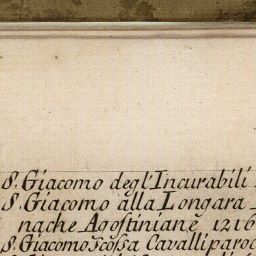 S. Giacomo degl'Incurabili
S. Giacomo alla Longara
nache Agostiniane 1216
S. Giacomo Scossa Cavalli paroc